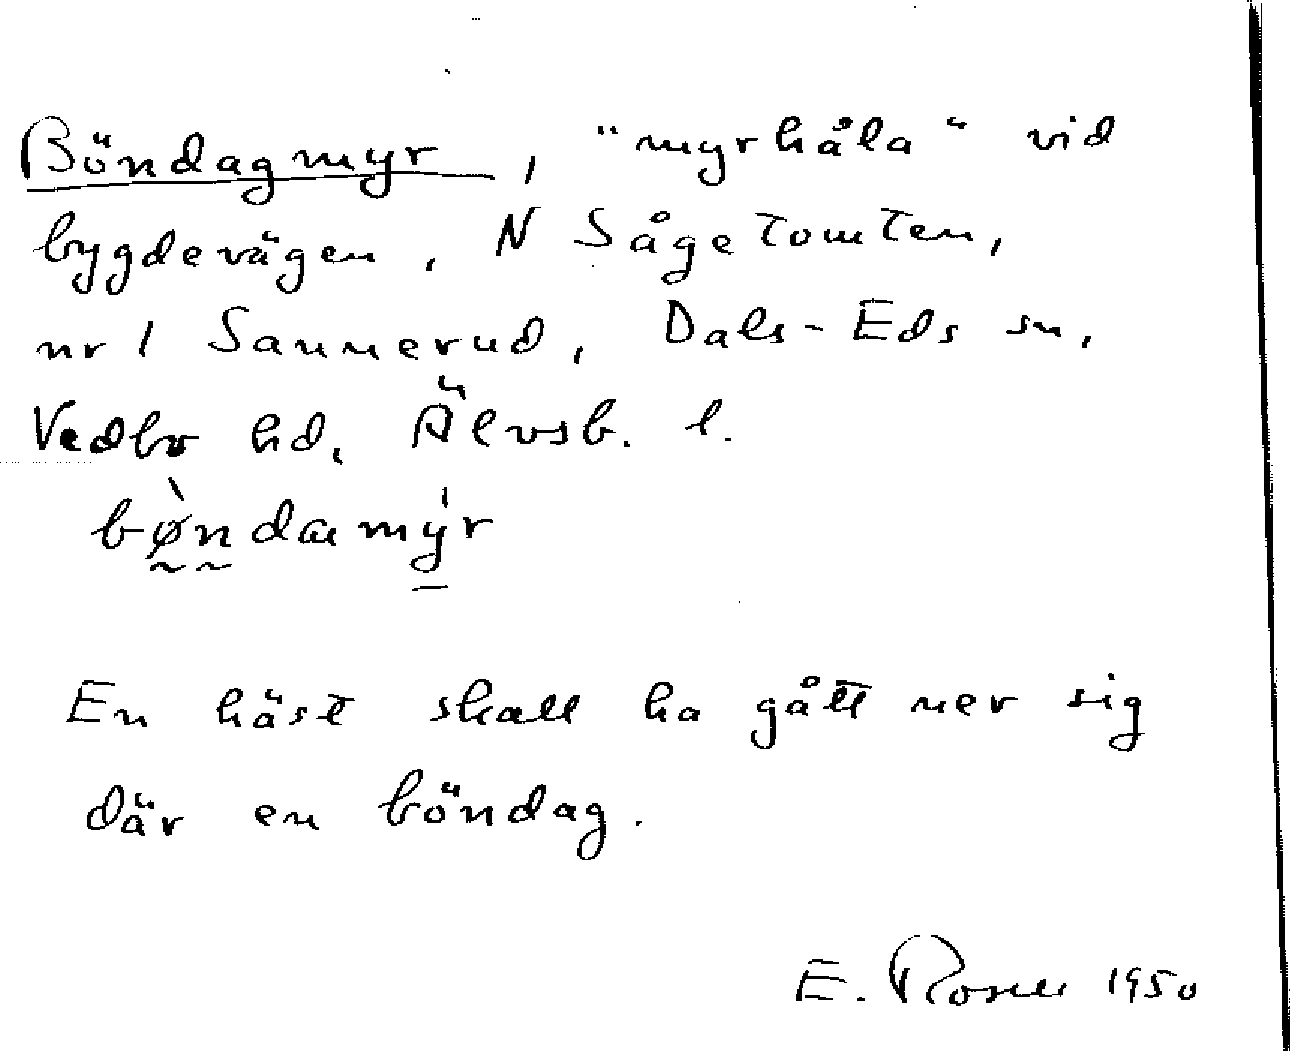 Böndagmyr, "myrhåla" vid
bygdevägen, N Sågetomten,
nr 1 Sannerud, Dals-Eds sn,
Vedbo hd, Älvsb. l.
bø̀ndamy̍r
En häst skall ha gått ner sig
där en böndag.
E. Rosen 1950